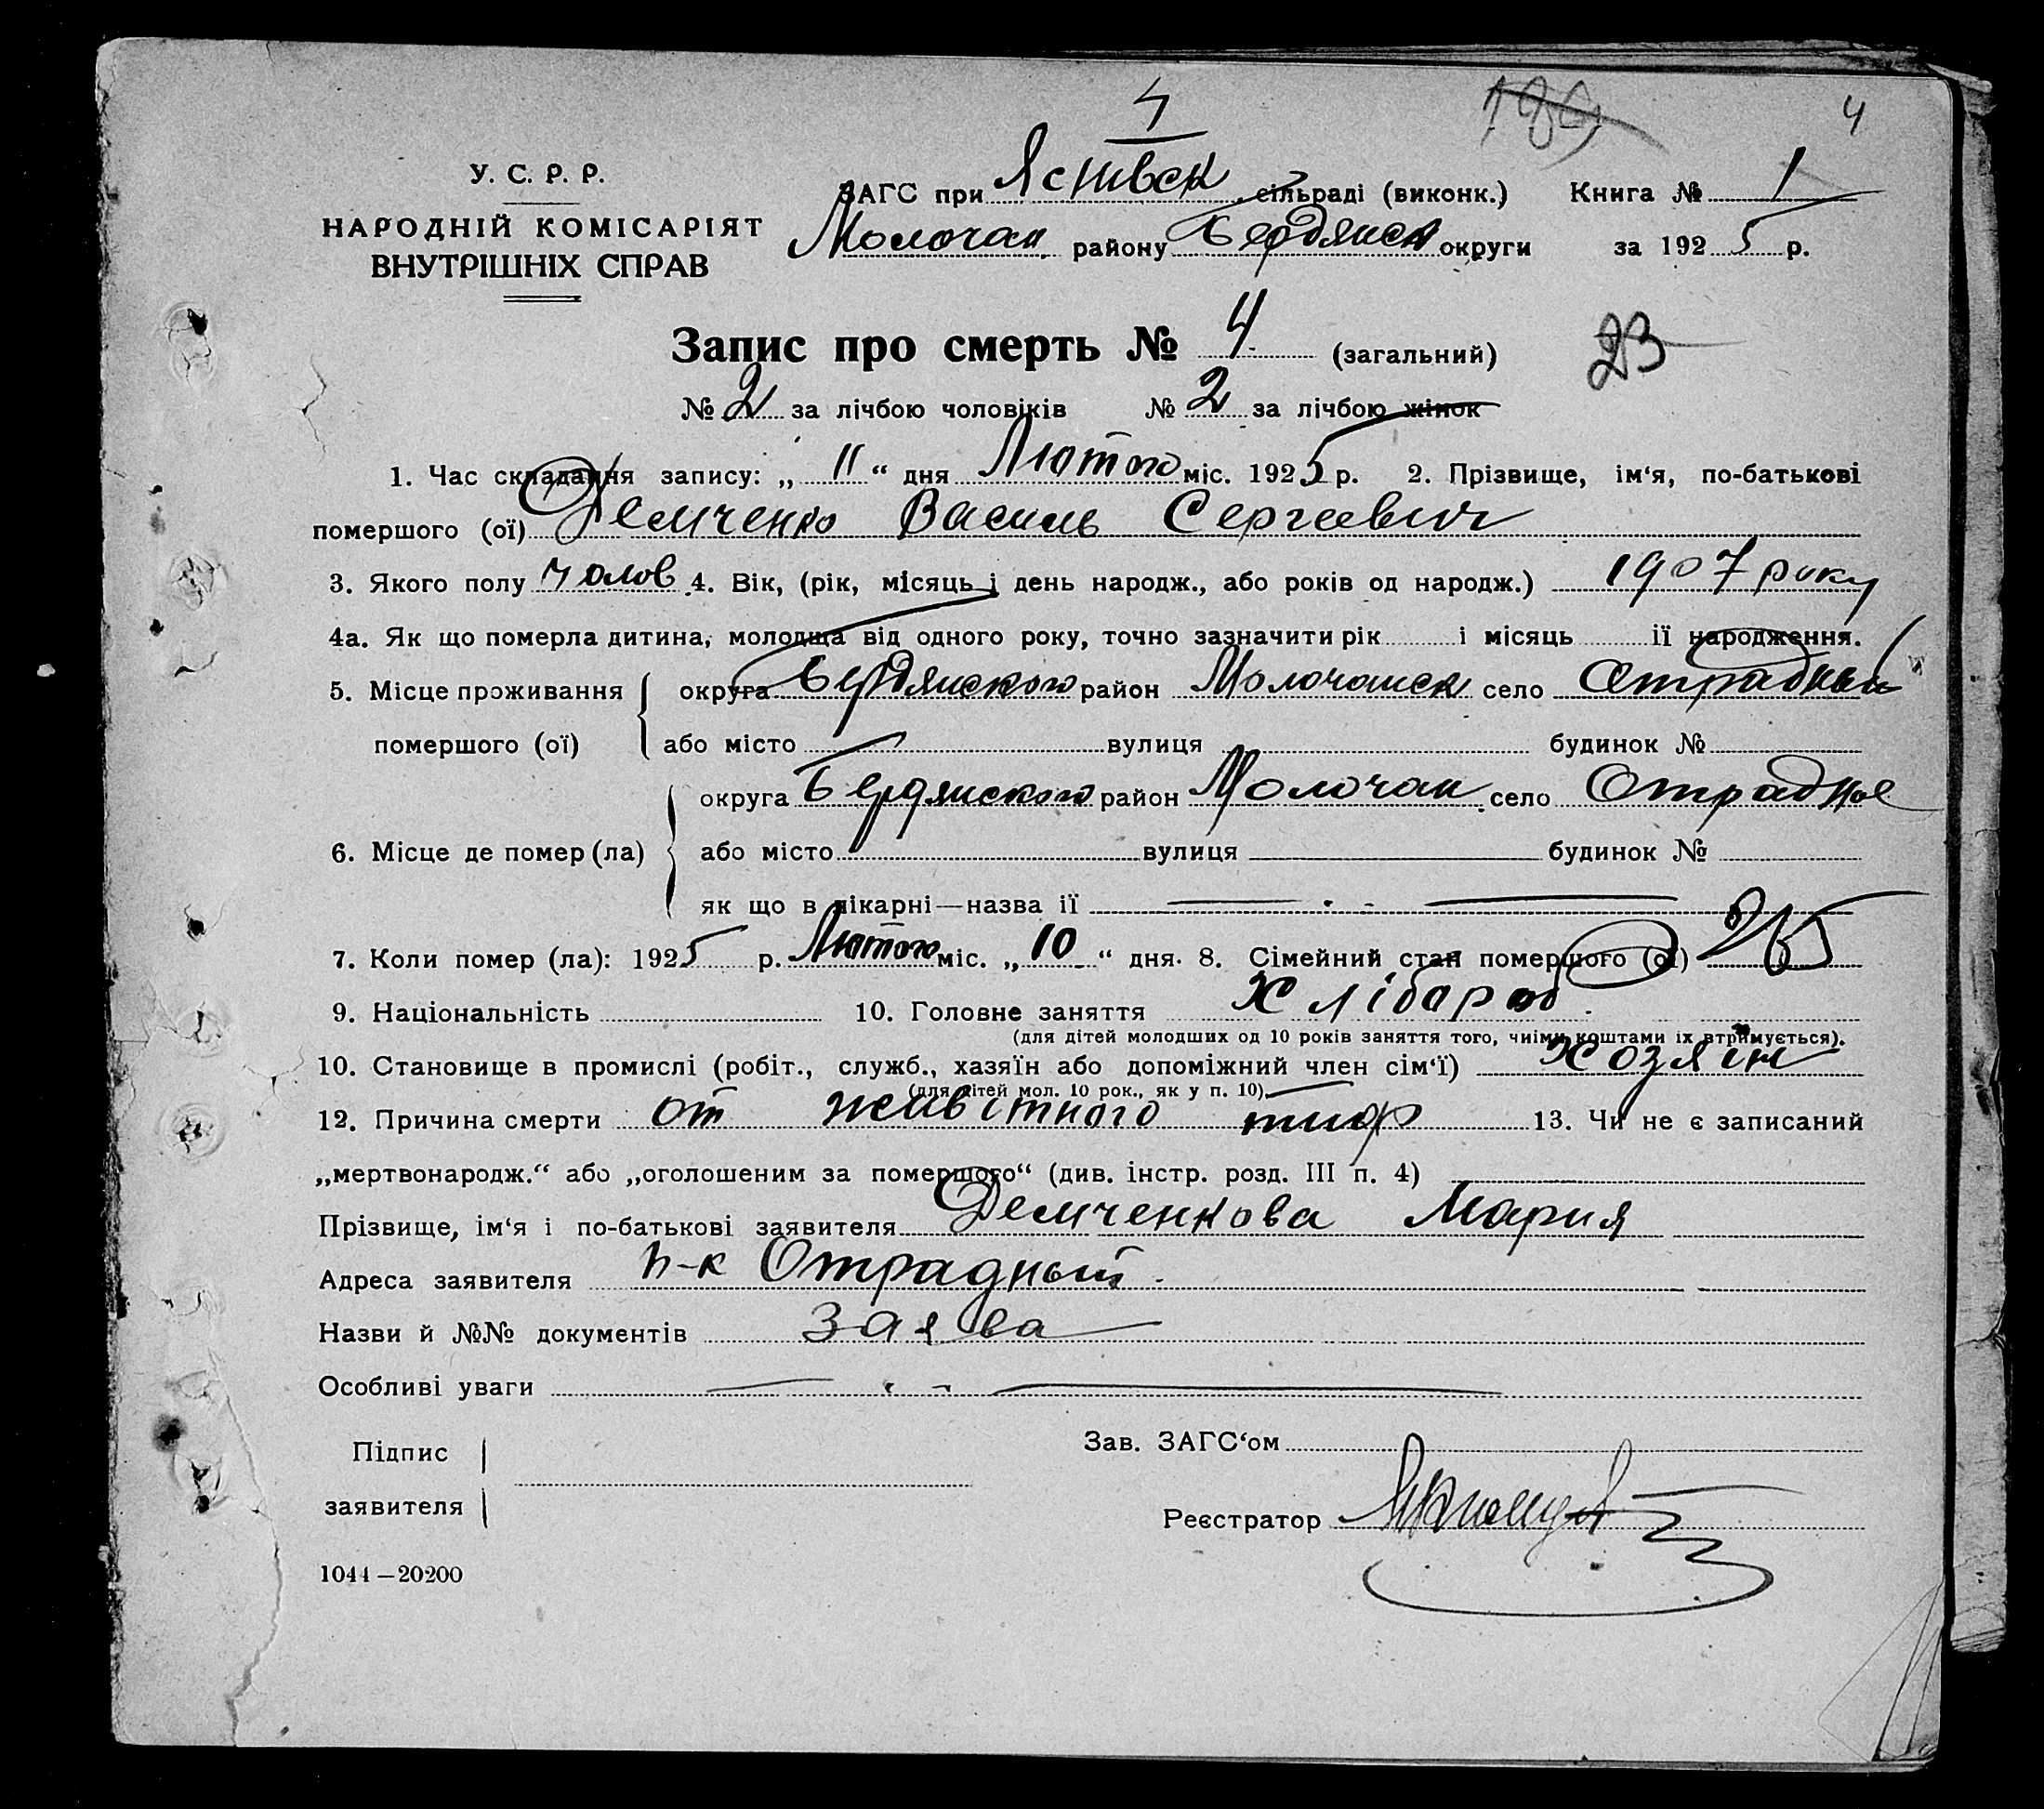 4
4
У. С. Р. Р.
НАРОДНІЙ КОМІСАРІЯТ
ВНУТРІШНІХ СПРАВ
ЗАГС при сільраді (виконк.) Книга № 1
Молочан району Бердянск округи за 1925 р.
Запис про смерть № 4 (загальний)
23
№ 2 за лічбою чоловіків № 2 за лічбою жінок
1. Час складання запису: „ 11 “ дня Лютого міс. 1925 р. 2. Прізвище, ім‘я, по-батькові
помершого (ої) Демченко Василь Сергеевич
3. Якого полу чолов 4. Вік, (рік, місяць і день народж., або років од народж.) 1907 року
4а. Як що померла дитина, молодща від одного року, точно зазначити рік і місяць ії народження.
5. Місце проживання помершого (ої) округа Бердянского район Молочанск село Отрадный
або місто вулиця будинок №
6. Місце де помер (ла) округа Бердянского район Молочан село Отрадное
або місто вулиця будинок №
як що в лікарні—назва ії
7. Коли помер (ла): 1925 р. Лютого міс. „ 10 “ дня. 8. Сімейний стан помершого (ої)
9. Національність 10. Головне заняття Хлібароб
(для дітей молодших од 10 років заняття того, чиїми коштами їх втримується).
10. Становище в промислі (робіт., служб., хазяїн або допоміжний член сім‘ї) хозяін
(для дітей мол. 10 рок., як у п. 10)
12. Причина смерти от живітного тиф 13. Чи не є записаний
„мертвонародж.“ або „оголошеним за помершого“ (див. інстр. розд. III п. 4)
Прізвище, ім‘я і по-батькові заявителя Демченкова Мария
Адреса заявителя п-к Отрадный.
Назви й №№ документів заява
Особливі уваги
Підпис заявителя
Зав. ЗАГС‘ом
Реєстратор
1044—20200